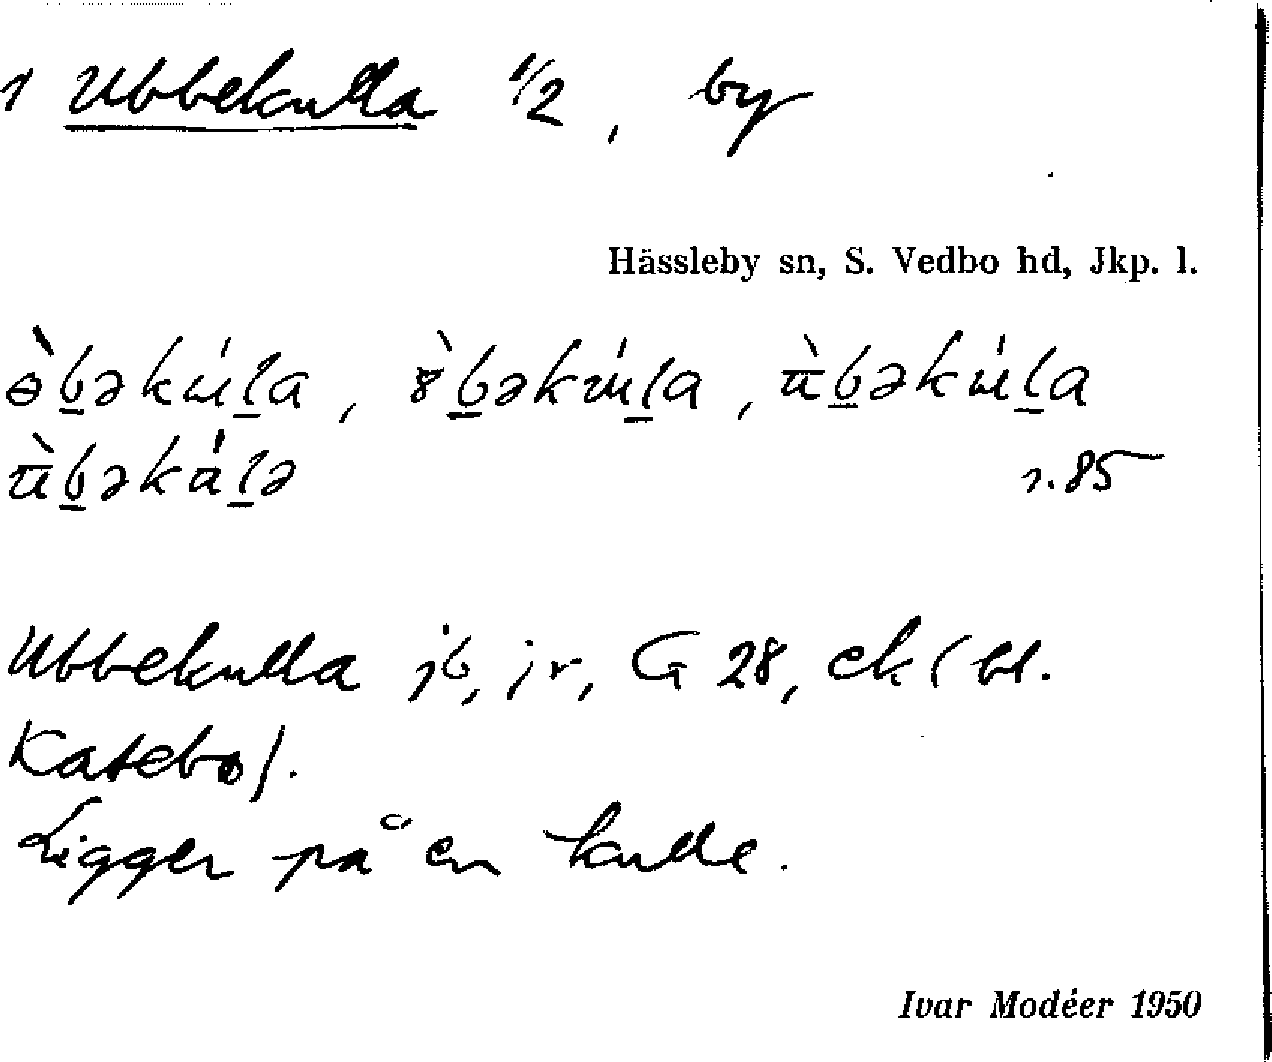 1 Ubbekulla 1/2, by
Hässleby sn, S. Vedbo hd, Jkp. l.
r. 85
Ubbekulla jb, jr, G 28, ek (bl.
Katebo).
Ligger på en kulle.
Ivar Modéer 1950